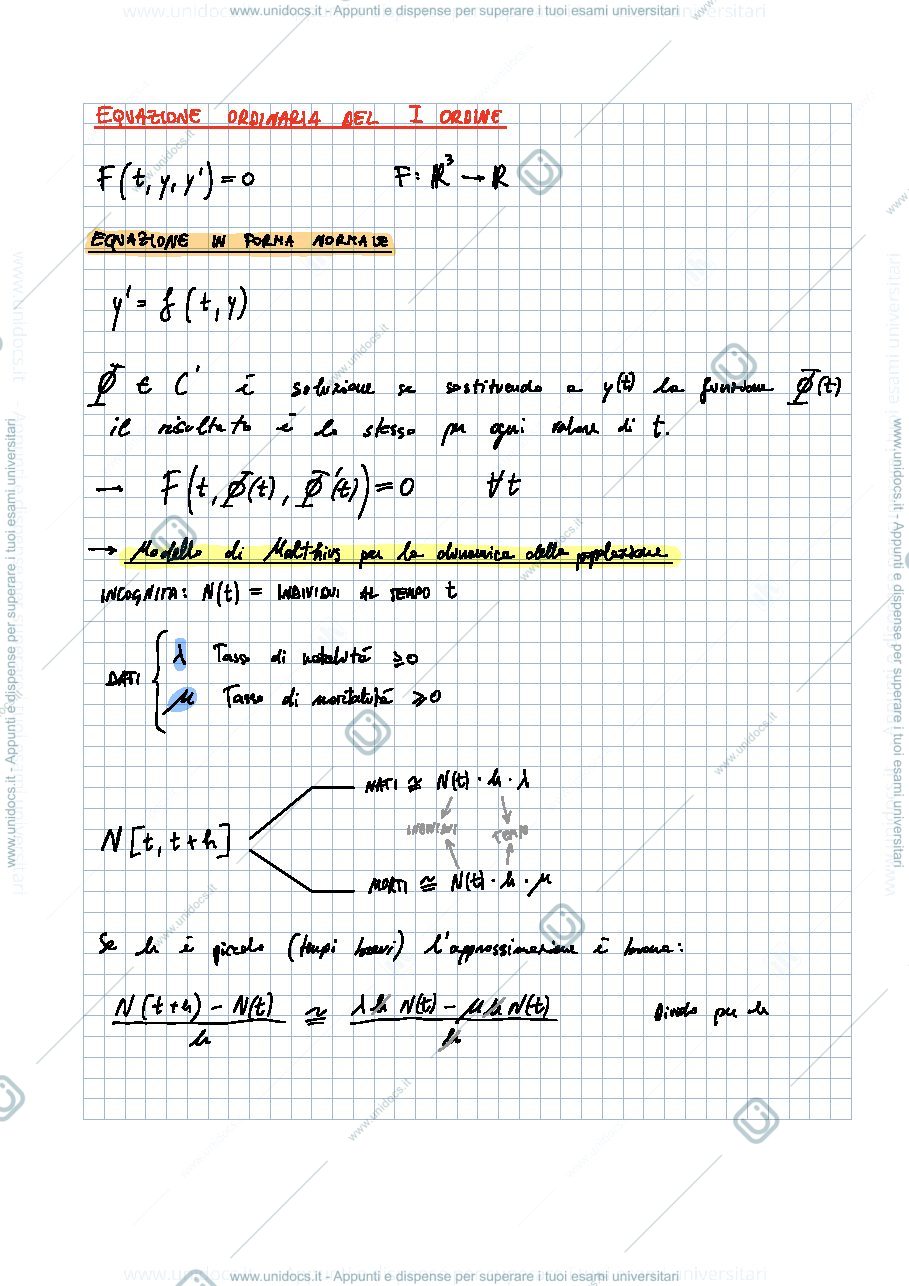 www.unidocs.it - Appunti e dispense per superare i tuoi esami universitari
EQUAZIONE ORDINARIA DEL I ORDINE
F(t, y, y') = 0    F: ℝ³ → ℝ
EQUAZIONE IN FORMA NORMALE
y' = f(t, y)
Φ ∈ C' è soluzione se sostituendo a y(t) la funzione Φ(t)
il risultato è lo stesso per ogni valore di t.
→ F(t, Φ(t), Φ'(t)) = 0    ∀t
→ Modello di Malthus per la dinamica della popolazione
INCOGNITA: N(t) = INDIVIDUI AL TEMPO t
DATI { λ Tasso di natalità ≥ 0
μ Tasso di mortalità ≥ 0
NATI ≅ N(t) · h · λ
INDIVIDUI    TEMPO
N[t, t+h]
MORTI ≅ N(t) · h · μ
Se h è piccolo (tempi brevi) l'approssimazione è buona:
(N(t+h) - N(t)) / h ≅ (λ h N(t) - μ h N(t)) / h    Divido per h
www.unidocs.it - Appunti e dispense per superare i tuoi esami universitari